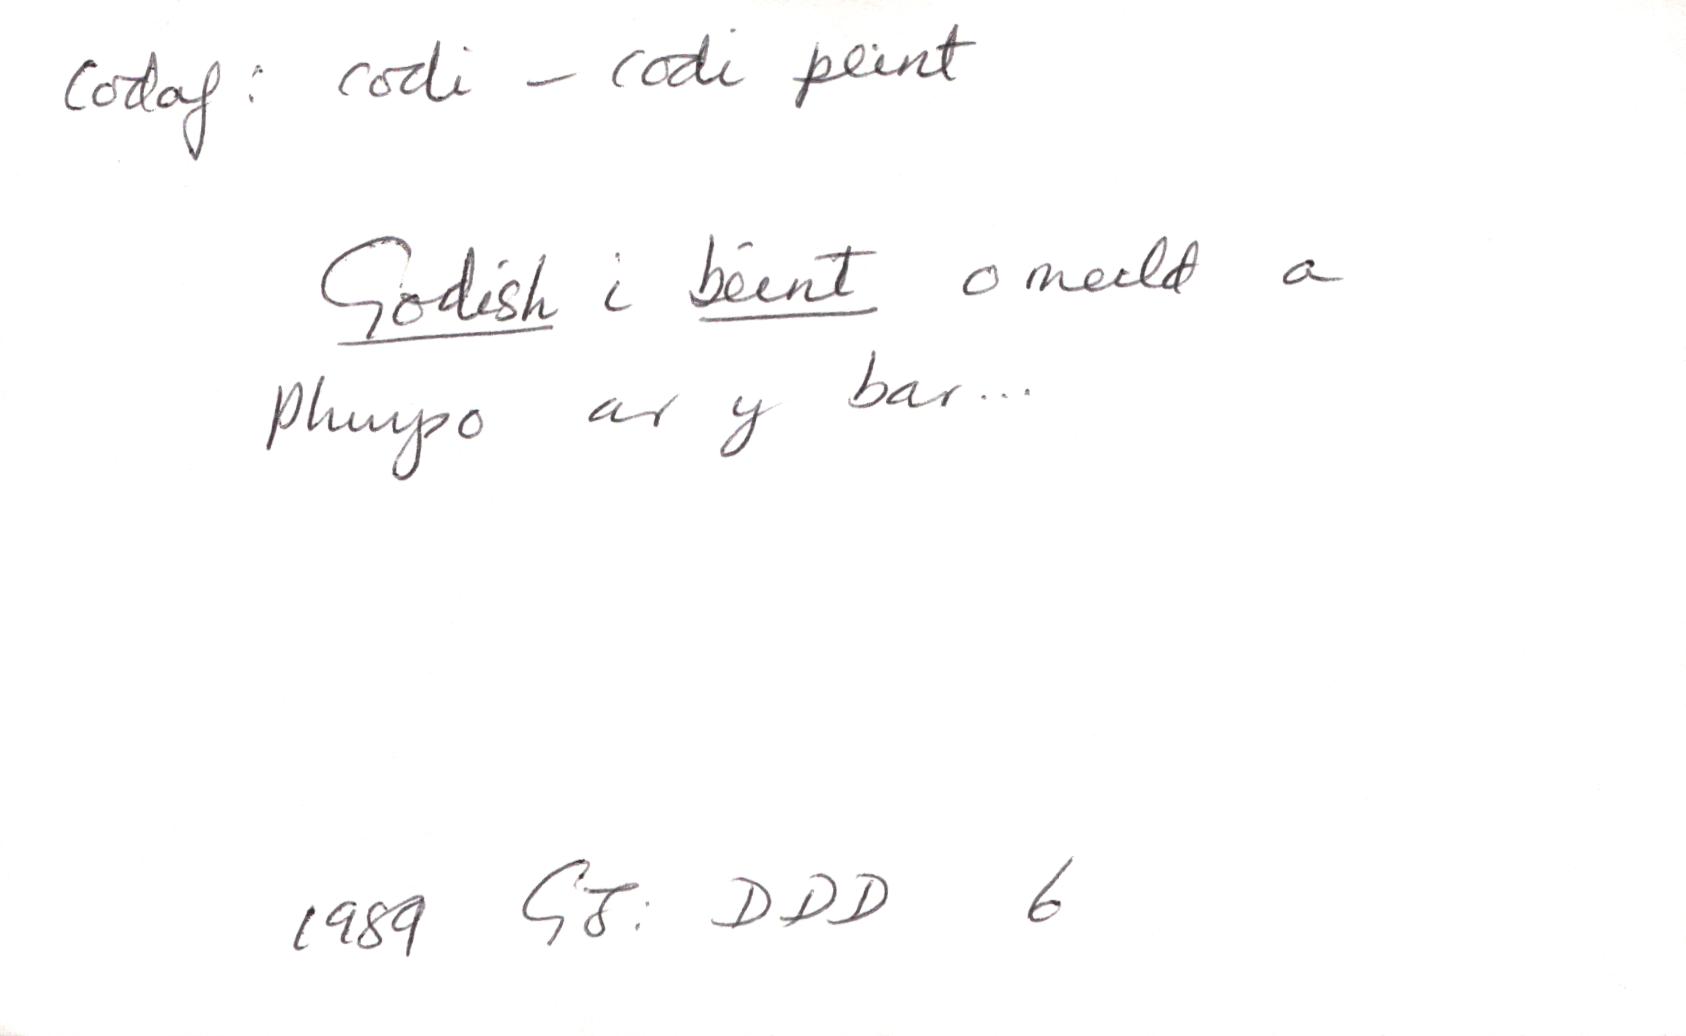 codaf: codi – codi peint
Godish i beint o meild a
phwyso ar y bar...
1989 GJ: DDD 6